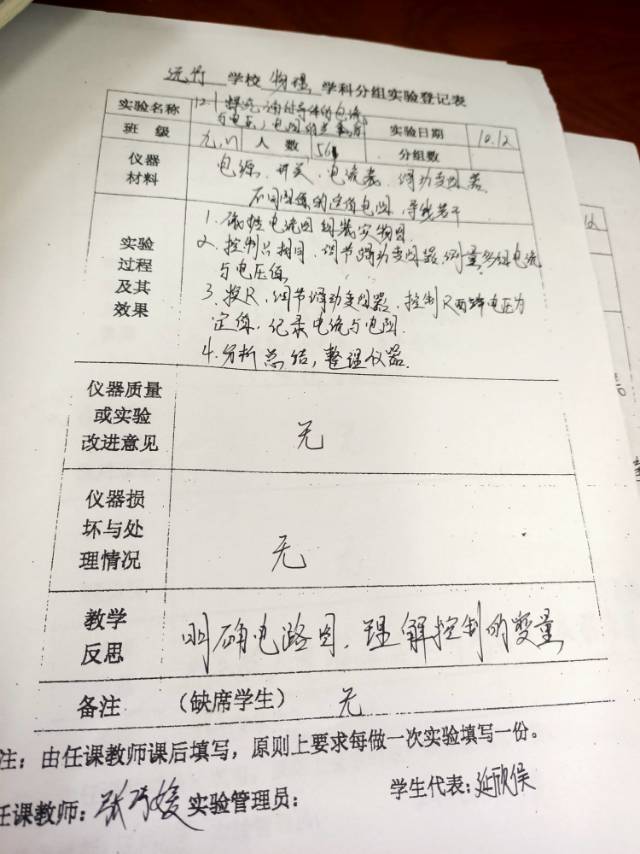 学校 物理 学科分组实验登记表
实验名称 12.1 探究通过导体的电流
与电压、电阻的关系 实验日期 10.12
班 级 九. 人 数 56 分组数
仪器
材料
电源、开关、电流表、滑动变阻器
不同阻值的定值电阻、导线若干
实验
过程
及其
效果
1. 电流图组装实物图.
2. 控制 相同,调节滑动变阻器,测量多组电流
与电压值
3. 换R,调节滑动变阻器,控制R两端电压为
定值,记录电流与电阻.
4.分析总结,整理仪器.
仪器质量
或实验
改进意见
无
仪器损
坏与处
理情况
无
教学
反思
明确电路图,理解控制的变量
备注 (缺席学生) 无
注:由任课教师课后填写,原则上要求每做一次实验填写一份。
任课教师:张 媛 实验管理员: 学生代表: 欣